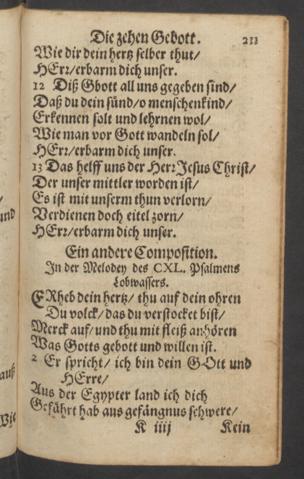 Die zehen Gebott. 211
Wie dir dein hertz selber thut/
HErr/erbarm dich unser.
12 Diß Gbott all uns gegeben sind/
Daß du dein sünd/o menschenkind/
Erkennen solt und lehrnen wol/
Wie man vor Gott wandeln sol/
HErr/erbarm dich unser.
13 Das helff uns der Herr Jesus Christ/
Der unser mittler worden ist/
Es ist mit unserm thun verlorn/
Verdienen doch eitel zorn/
HErr/erbarm dich unser.
Ein andere Composition.
In der Melodey des CXL. Psalmens
Lobwassers.
ERheb dein hertz/ thu auf dein ohren
Du volck/das du verstocket bist/
Merck auf/und thu mit fleiß anhören
Was Gotts gebott und willen ist.
2 Er spricht/ ich bin dein GOtt und
HErre/
Aus der Egypter land ich dich
Geführt hab aus gefängnus schwere/
K iiij Kein
und
auß
Wie